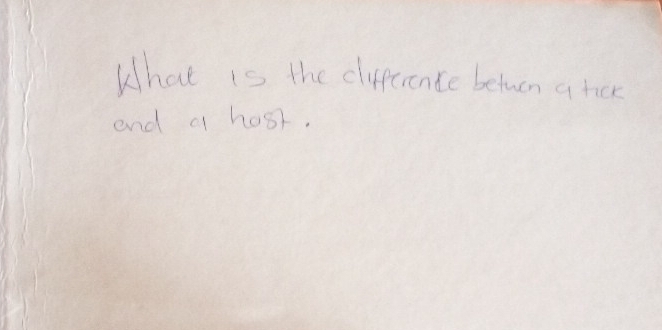 What is the difference betwen a tick
and a host.